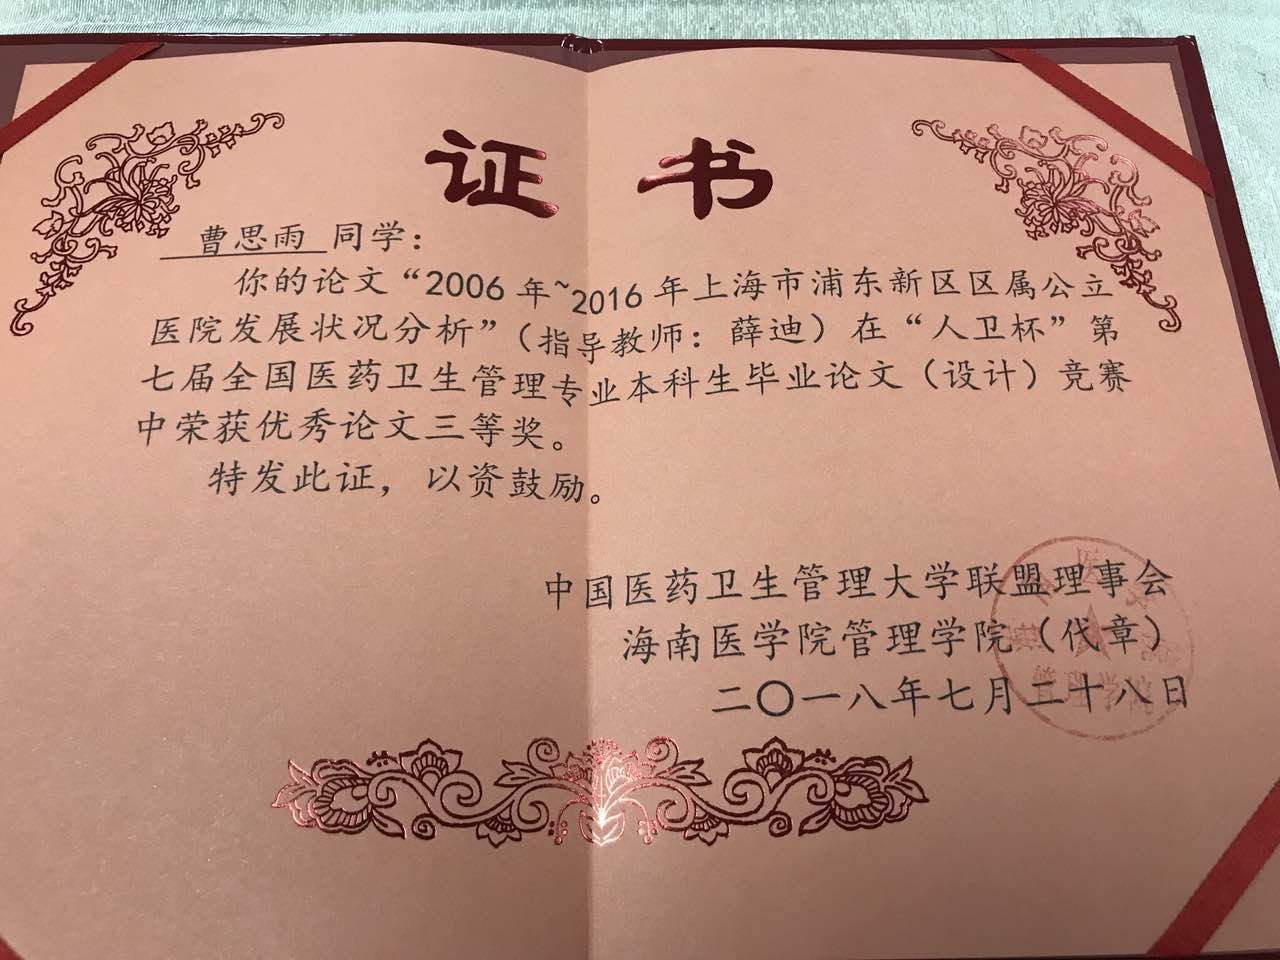 证书
曹思雨 同学：
你的论文“2006年~2016年上海市浦东新区区属公立
医院发展状况分析”（指导教师：薛迪）在“人卫杯”第
七届全国医药卫生管理专业本科生毕业论文（设计）竞赛
中荣获优秀论文三等奖。
特发此证，以资鼓励。
中国医药卫生管理大学联盟理事会
海南医学院管理学院（代章）
二〇一八年七月二十八日
管理学院